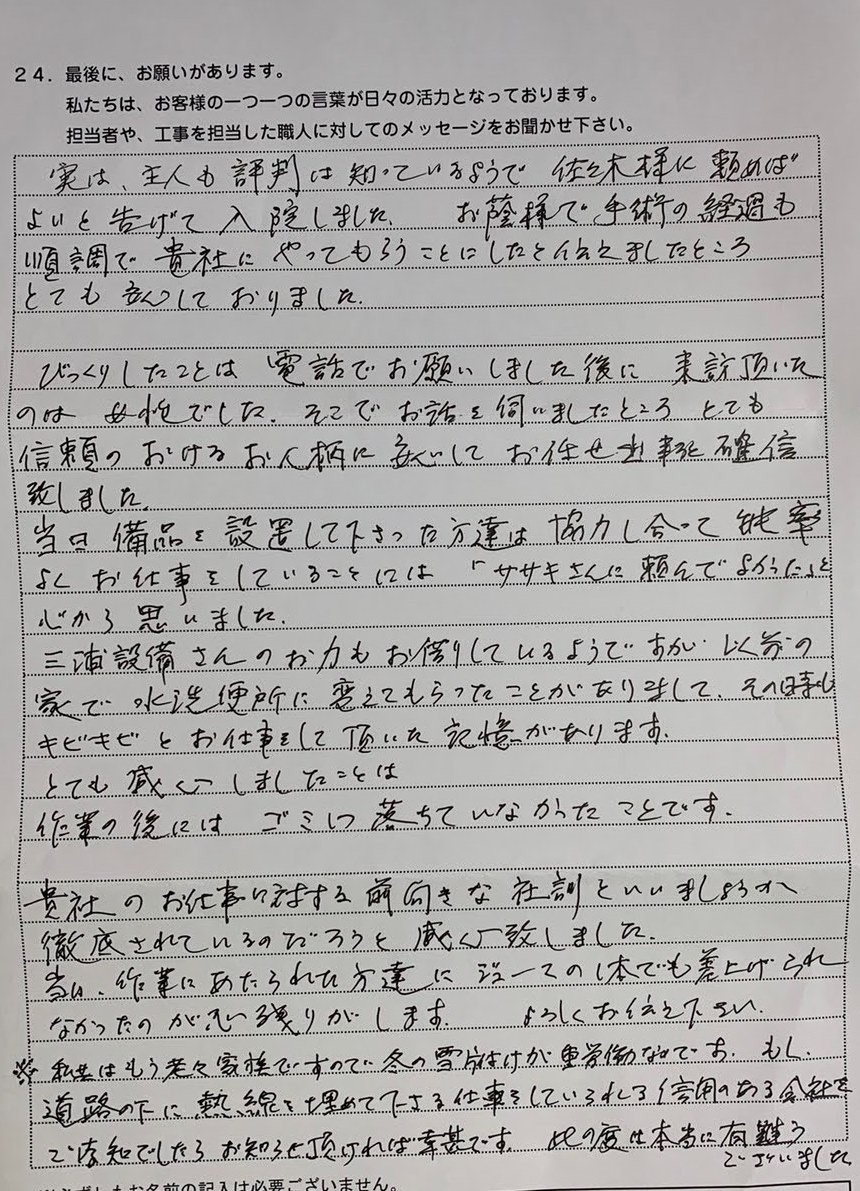 24. 最後に、お願いがあります。
私たちは、お客様の一つ一つの言葉が日々の活力となっております。
担当者や、工事を担当した職人に対してのメッセージをお聞かせ下さい。
実は、主人も評判は知っているようで 佐々木様に頼めば
よいと告げて入院しました。 お蔭様で手術の経過も
順調で貴社にやってもらうことにしたと伝えましたところ
とても安心しておりました。
びっくりしたことは電話でお願いしました後に 来訪頂いた
のは女性でした。そこでお話を伺いましたところ とても
信頼のおけるお人柄に安心して お任せ出来ると確信
致しました。
当日備品を設置して下さった方達は協力し合って能率
よくお仕事をしていることには「ササキさんに頼んでよかった」と
心から思いました。
三浦設備さんのお力もお借りしているようですが 以前の
家で水洗便所に変えてもらったことがありまして、その時も
キビキビとお仕事をして頂いた記憶があります。
とても感心しましたことは
作業の後には ゴミ1つ落ちていなかったことです。
貴社のお仕事に対する前向きな社訓といいましょうか
徹底されているのだろうと感心致しました。
当日、作業にあたられた方達にジュースの1本でも差上げられ
なかったのが思い残りがします。 よろしくお伝え下さい。
※ 私共はもう老々家族ですので冬の雪片付けが重労働なのです。もし
道路の下に熱線を埋めて下さる仕事をしていられる信用のある会社を
ご存知でしたらお知らせ頂ければ幸甚です。此の度は本当に有難う
ございました
お名前の記入は必要ございません。